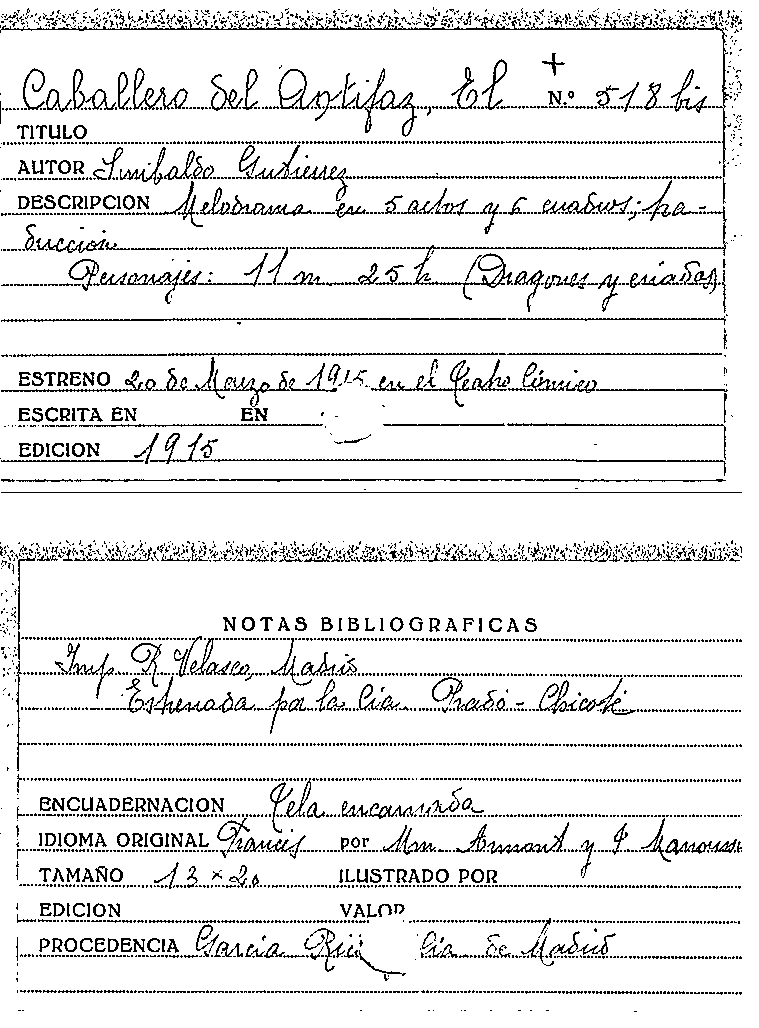 +
Caballero del Antifaz, El N.º 518 bis
TITULO
AUTOR Sinibaldo Gutiérrez
DESCRIPCION Melodrama en 5 actos y 6 cuadros; tra-
ducción
Personajes: 11 m. 25 h (Dragones y criados)
ESTRENO 20 de Marzo de 1915 en el Teatro Cómico
ESCRITA EN EN
EDICION 1915
NOTAS BIBLIOGRAFICAS
Imp R. Velasco, Madrid
Estrenada por la Cía. Prado - Chicote
ENCUADERNACION Tela encarnada
IDIOMA ORIGINAL Francés por Mm. Armont y Manoussi
TAMAÑO 13 × 20 ILUSTRADO POR
EDICION VALOR
PROCEDENCIA García Cía de Madrid